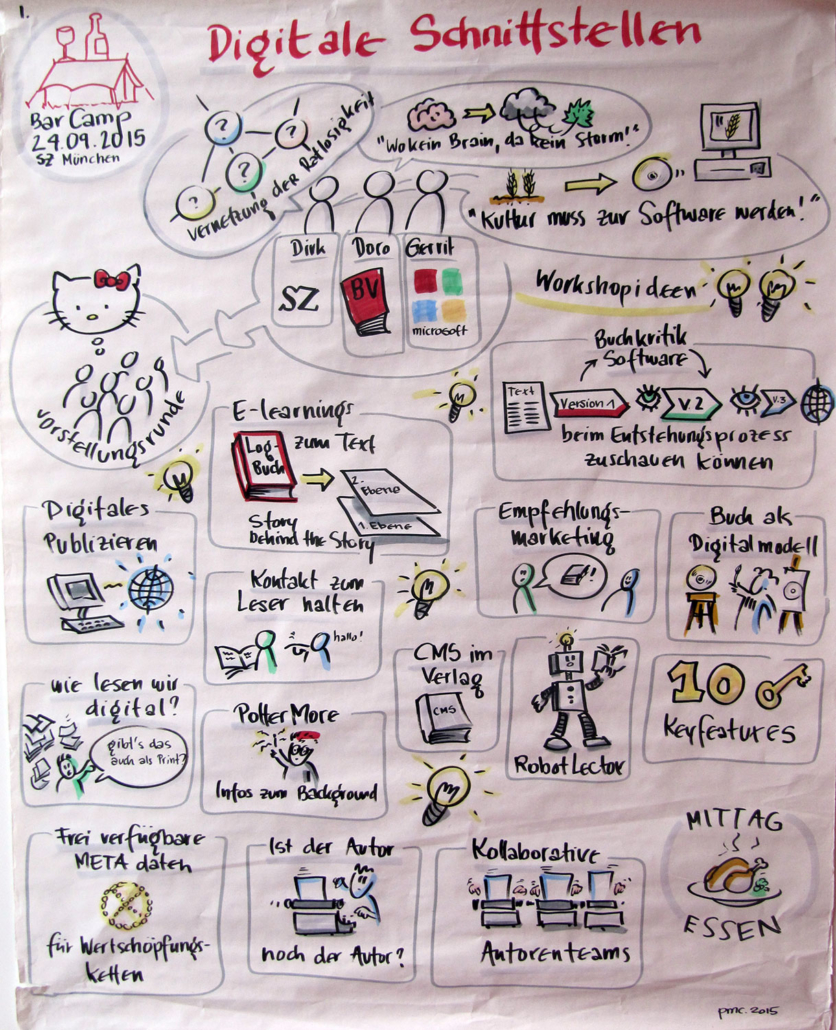 1.
Digitale Schnittstellen
BarCamp
24.09.2015
SZ München
?
?
?
?
Vernetzung der Ratlosigkeit
"Wo kein Brain, da kein Storm!"
"Kultur muss zur Software werden!"
Dirk
SZ
Doro
BV
Gerrit
microsoft
Vorstellungsrunde
Workshopideen
Buchkritik
Software
Text
Version 1
V.2
V.3
beim Entstehungsprozess
zuschauen können
E-learnings
zum Text
Log-
Buch
2.
Ebene
1. Ebene
Story
behind the Story
Digitales
Publizieren
Kontakt zum
Leser halten
hallo!
Empfehlungs-
marketing
!
Buch als
Digitalmodell
wie lesen wir
digital?
gibt's das
auch als Print?
PotterMore
Infos zum Background
CMS im
Verlag
CMS
RobotLector
10
Keyfeatures
Frei verfügbare
META daten
für Wertschöpfungs-
ketten
Ist der Autor
noch der Autor?
Kollaborative
Autorenteams
MITTAG
ESSEN
pmc. 2015